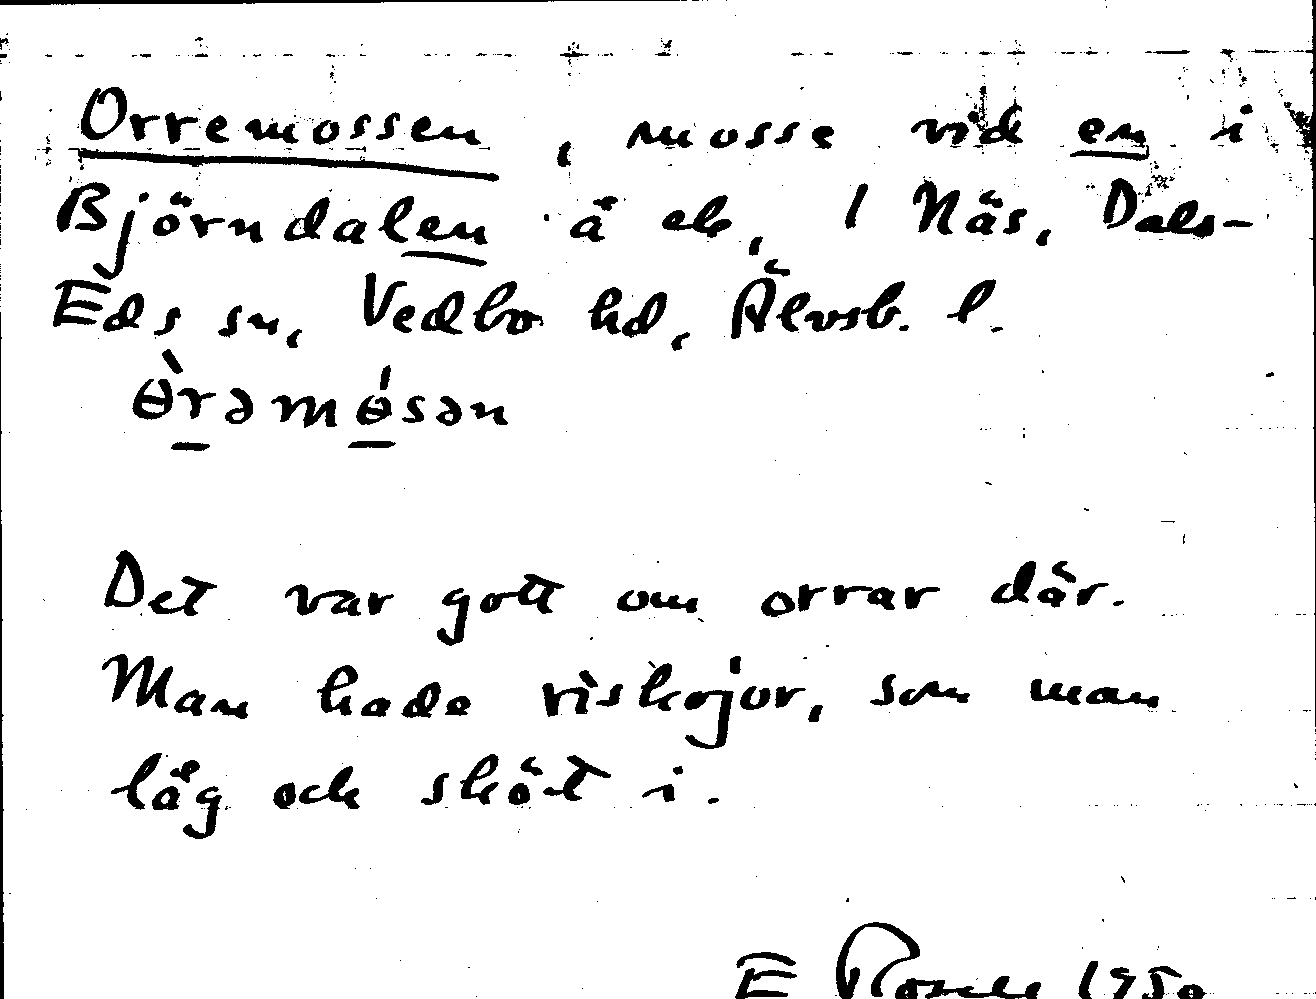 Orremossen, mosse vid en i
Björndalen å ek, 1 Näs, Dals-
Eds sn, Vedbo hd, Älvsb. l.
ɵ̀rəmɵ́sən
Det var gott om orrar där.
Man hade riskojor, som man
låg och sköt i.
E 1950